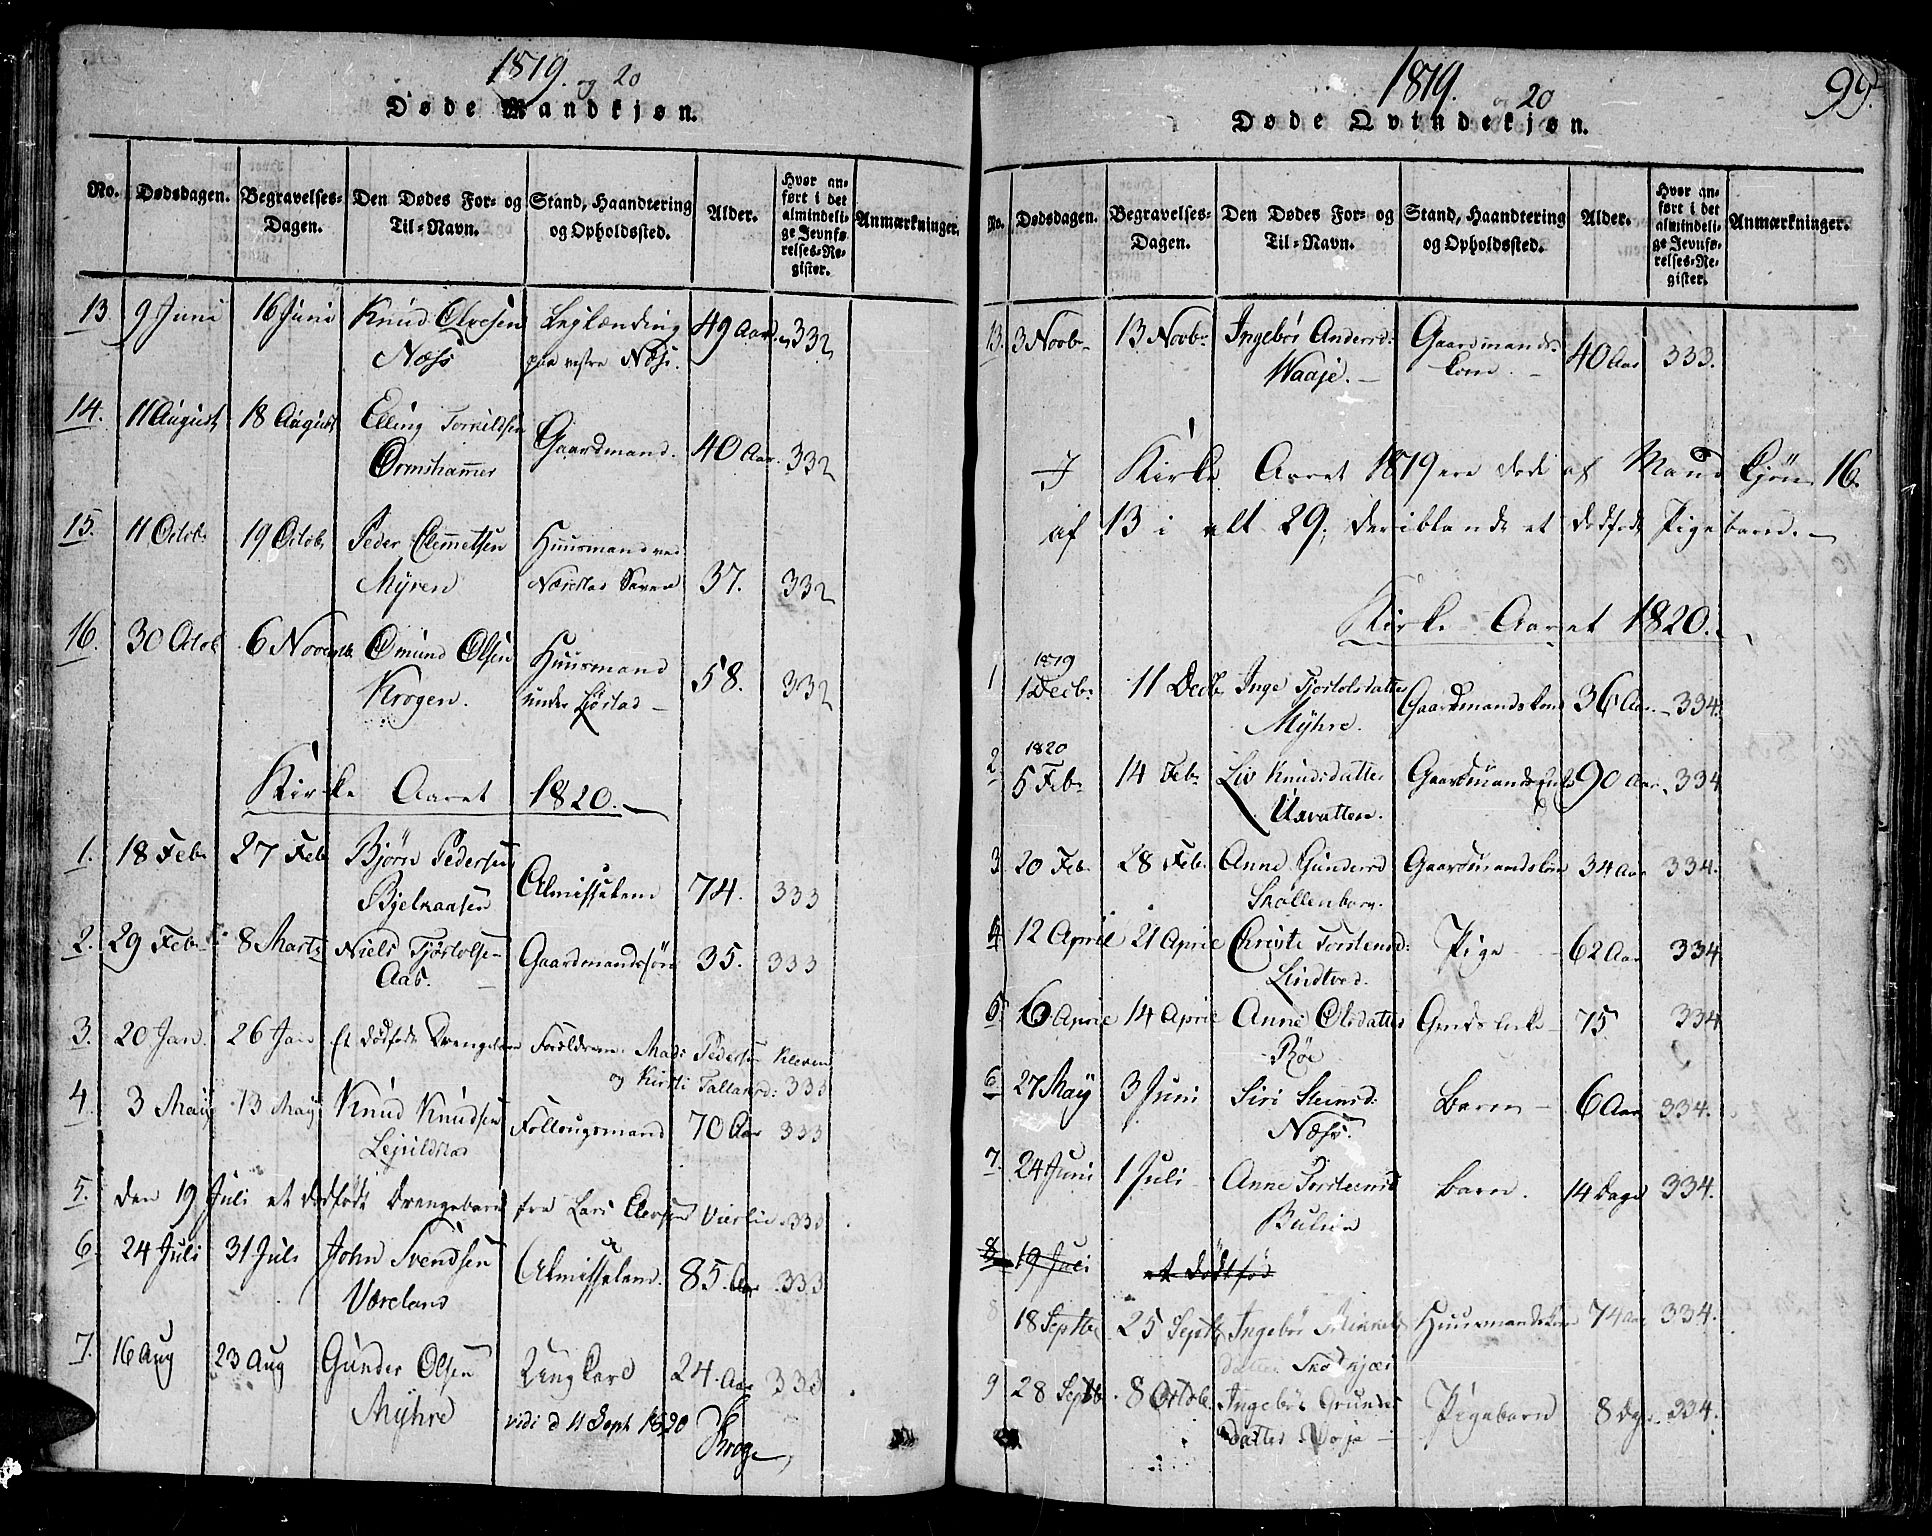 1819. og 20
Døde Mandkjøn.
No. Dødsdagen. Begravelses-Dagen. Den Dødes For- og Til-Navn. Stand, Haandtering og Opholdssted. Alder. Hvor anført i det almindelige Jevnførelses-Register. Anmærkninger.
13. 9 Juni 16 Juni Knud Olvesen Lejlænding 49 Aar 332
Næss paa vestre Næss.
14. 11 August 18 August Elling Torkildsen Gaardmand. 40 Aar. 332
Ormshammer
15. 11 Octob. 19 Octob. Peder Clemmetsen Huusmand ved 37. 332
Myren Nærstad
16. 30 Octob 6 Novemb. Omund Olsen Huusmand 58. 332
Krogen. under
Kirke Aaret 1820.
1. 18 Feb. 27 Feb. Bjørn Pedersen Almisselem 74. 333
Bjelkaasen
2. 29 Feb. 8 Marts Niels Tjøstolvse Gaardmandssøn 35. 333
Aas.
3. 20 Jan. 26 Jan et dødfødt Drengebarn Forældrene: Mads Pedersen Kleven
og Kirsti Tallaksd: 333
4. 3 May 13 May Knud Knudsen Follougsmand 70 Aar 333
5. den 19 Juli et dødfødt Drengebarn fra Lars 333
6. 24 Juli 31 Juli John Svendsen Almisselem. 85. Aar 333
Væreland
7. 16 Aug 23 Aug Gunder Olsen Ungkarl 24. Aar 333
Myhre vidi d 11 Sept 1820
Krog
1819. og 20
99.
Døde Qvindekjøn.
No. Dødsdagen. Begravelses-Dagen. Den Dødes For- og Til-Navn. Stand, Haandtering og Opholdssted. Alder. Hvor anført i det almindelige Jevnførelses-Register. Anmærkninger.
13. 3 Novb. 13 Novb. Ingebor Andersd: Gaardmands- 40 Aar 333.
Waaje. kone.
I Kirke Aaret 1819 ere døde af Mandkjøn 16.
af 13 i alt 29; deriblandt et dødfødt Pigebarn.
Kirke Aaret 1820.
1819
1 1 Decbr 11 Decb. Inge Tjostolsdatter Gaardmandskone 36 Aar 334.
Myhre.
1820
2 5 Feb. 14 Feb. Liv Knudsdatter 90 Aar 334
Uxvatten.
3 20 Feb. 28 Feb. Anne Gundersd Gaardmandskone 34 Aar 334.
Skollenborg.
4 12 April 21 April Christe Torstensd: Pige 62 Aar 334
Lindtved.
5. 6 April 14 April Anne Olsdatter 75 334
Røe
6. 27 May 3 Juni Siri Steensd: Barn 6 Aar 334.
Næss.
7. 24 Juni 1 Juli Anne Torsteensd Barn. 14 Dage 334.
8 19 Juli et dødfød
8 18 Septbr 25 Septb Ingebor Huusmandskone 74 Aar 334.
datter
9 28 Septb. 8 Octob. Ingebor Gunders Pigebarn 8 Dage 334.
datter